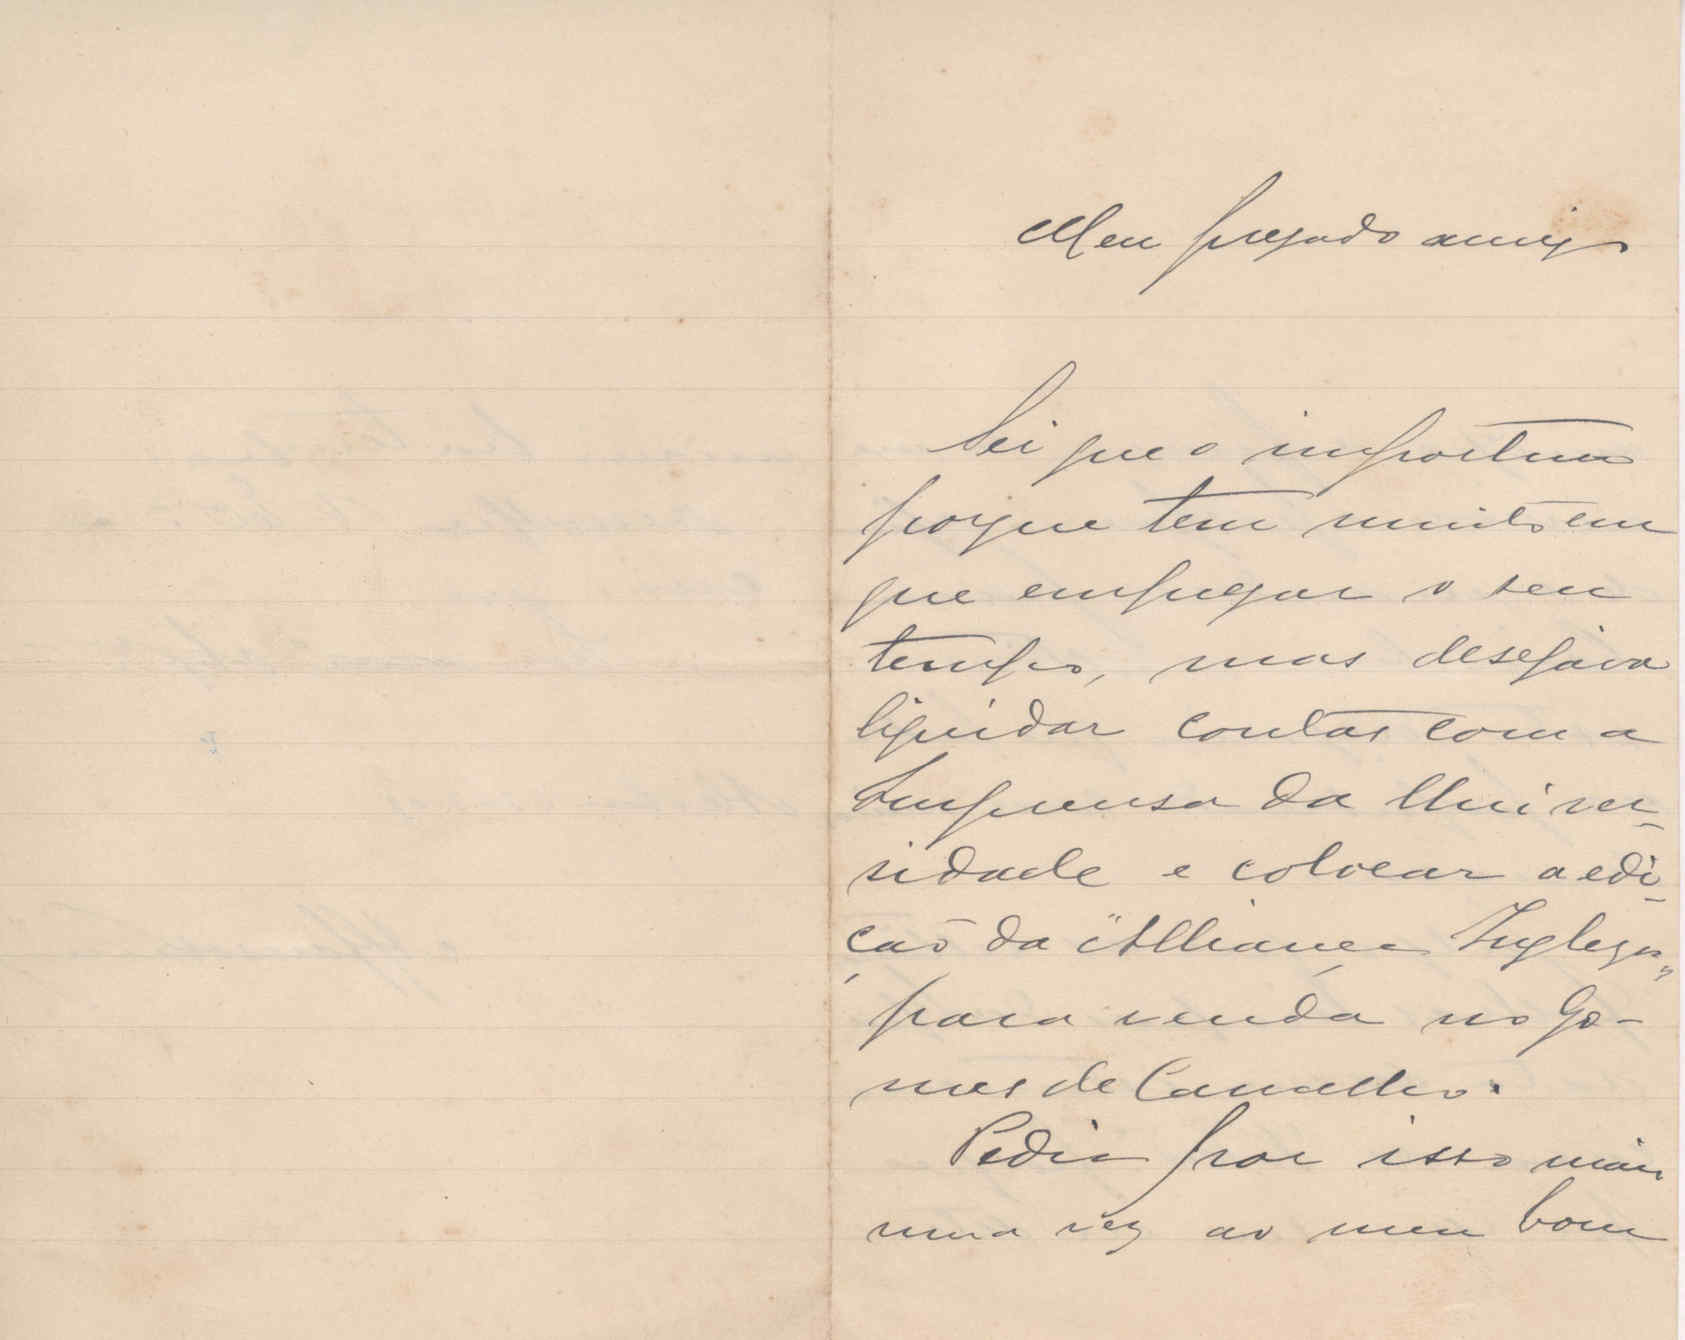 Meu presado amigo
Sei que o importuno
porque tem muito em
que empregar o seu
tempo, mas desejava
liquidar contas com a
Imprensa da Univer-
sidade e colocar a edi-
ção da "Alliança Ingleza"
para venda no Go-
mes de Carvalho.
Pedia por isso mais
uma vez ao meu bom